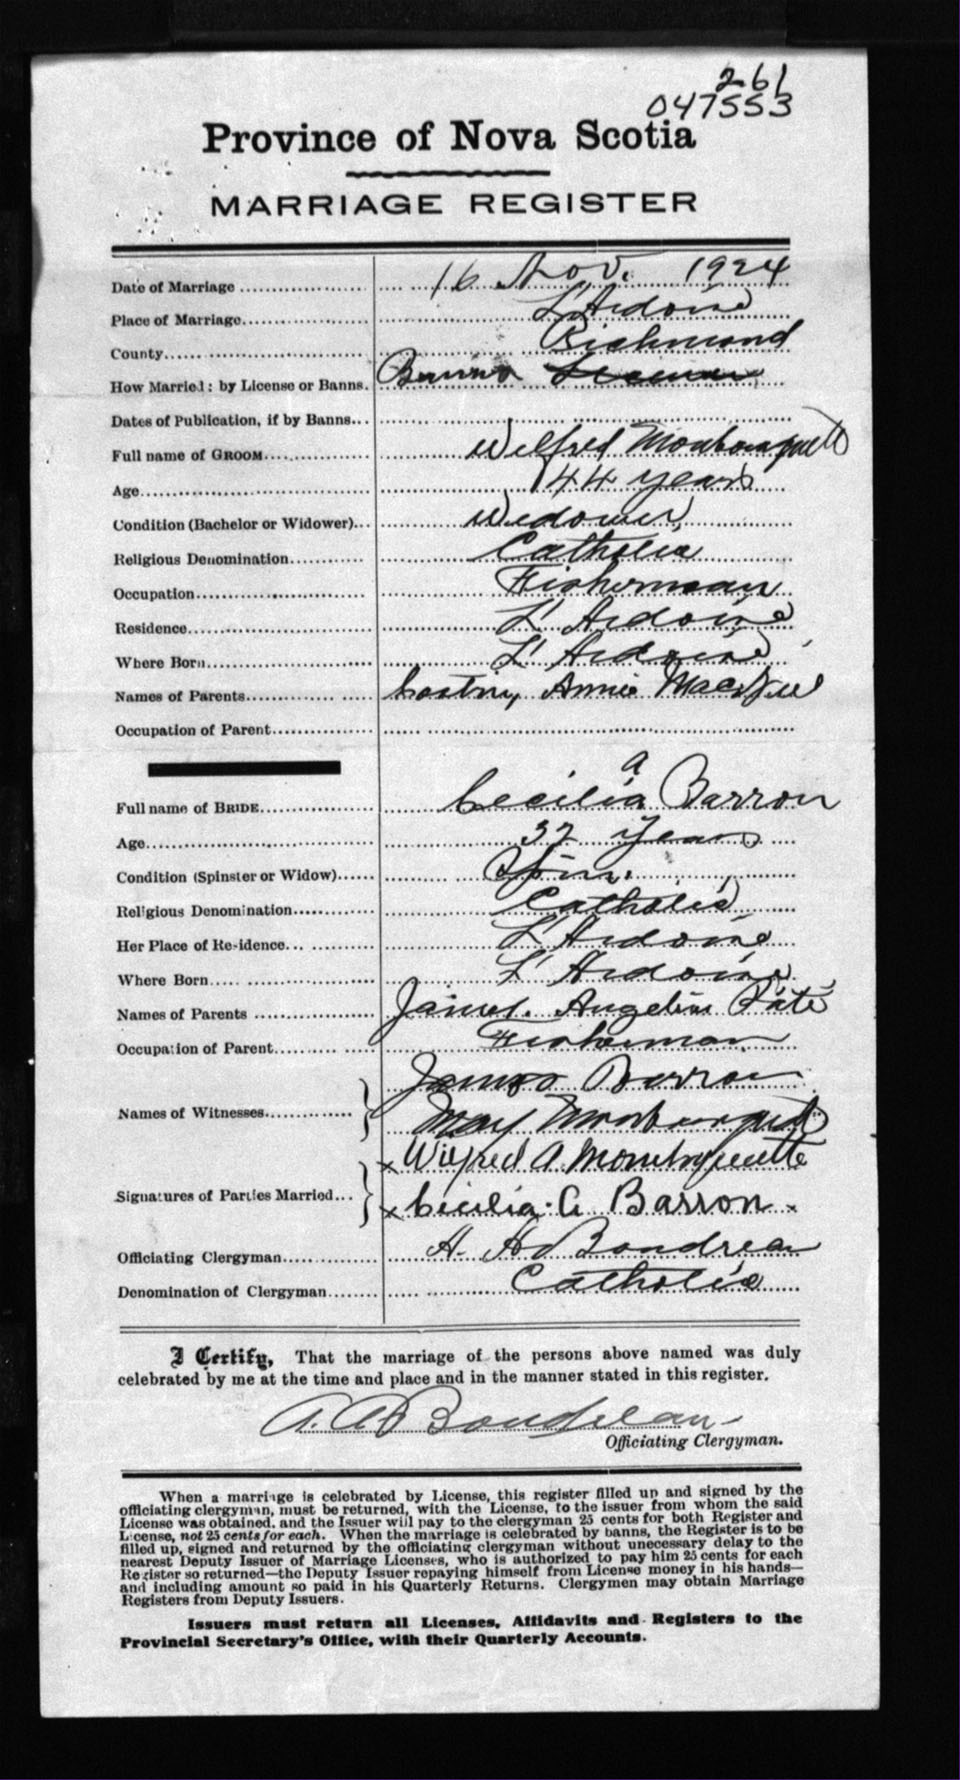 261
047553
Province of Nova Scotia
MARRIAGE REGISTER
Date of Marriage 16 Nov. 1924
Place of Marriage L'Ardoise
County Richmond
How Married: by License or Banns. Banns
Dates of Publication, if by Banns
Full name of GROOM Wilfred Mombourquette
Age 44 years
Condition (Bachelor or Widower) Widower
Religious Denomination Catholic
Occupation Fisherman
Residence L'Ardoise
Where Born L'Ardoise
Names of Parents Annie
Occupation of Parent
Full name of BRIDE Cecilia a Barron
Age 32 years
Condition (Spinster or Widow) Spin.
Religious Denomination Catholic
Her Place of Residence L'Ardoise
Where Born L'Ardoise
Names of Parents James. Angeline Pate
Occupation of Parent Fisherman
James Barron
Names of Witnesses May Mombourquette
x Wilfred A. Mombourquette
Signatures of Parties Married x Cecilia. A Barron x
Officiating Clergyman A. A Boudreau
Denomination of Clergyman Catholic
I Certify, That the marriage of the persons above named was duly
celebrated by me at the time and place and in the manner stated in this register.
A. A Boudreau
Officiating Clergyman.
When a marriage is celebrated by License, this register filled up and signed by the
officiating clergyman, must be returned, with the License, to the issuer from whom the said
License was obtained, and the Issuer will pay to the clergyman 25 cents for both Register and
License, not 25 cents for each. When the marriage is celebrated by banns, the Register is to be
filled up, signed and returned by the officiating clergyman without unecessary delay to the
nearest Deputy Issuer of Marriage Licenses, who is authorized to pay him 25 cents for each
Register so returned—the Deputy Issuer repaying himself from License money in his hands—
and including amount so paid in his Quarterly Returns. Clergymen may obtain Marriage
Registers from Deputy Issuers.
Issuers must return all Licenses, Affidavits and Registers to the
Provincial Secretary's Office, with their Quarterly Accounts.